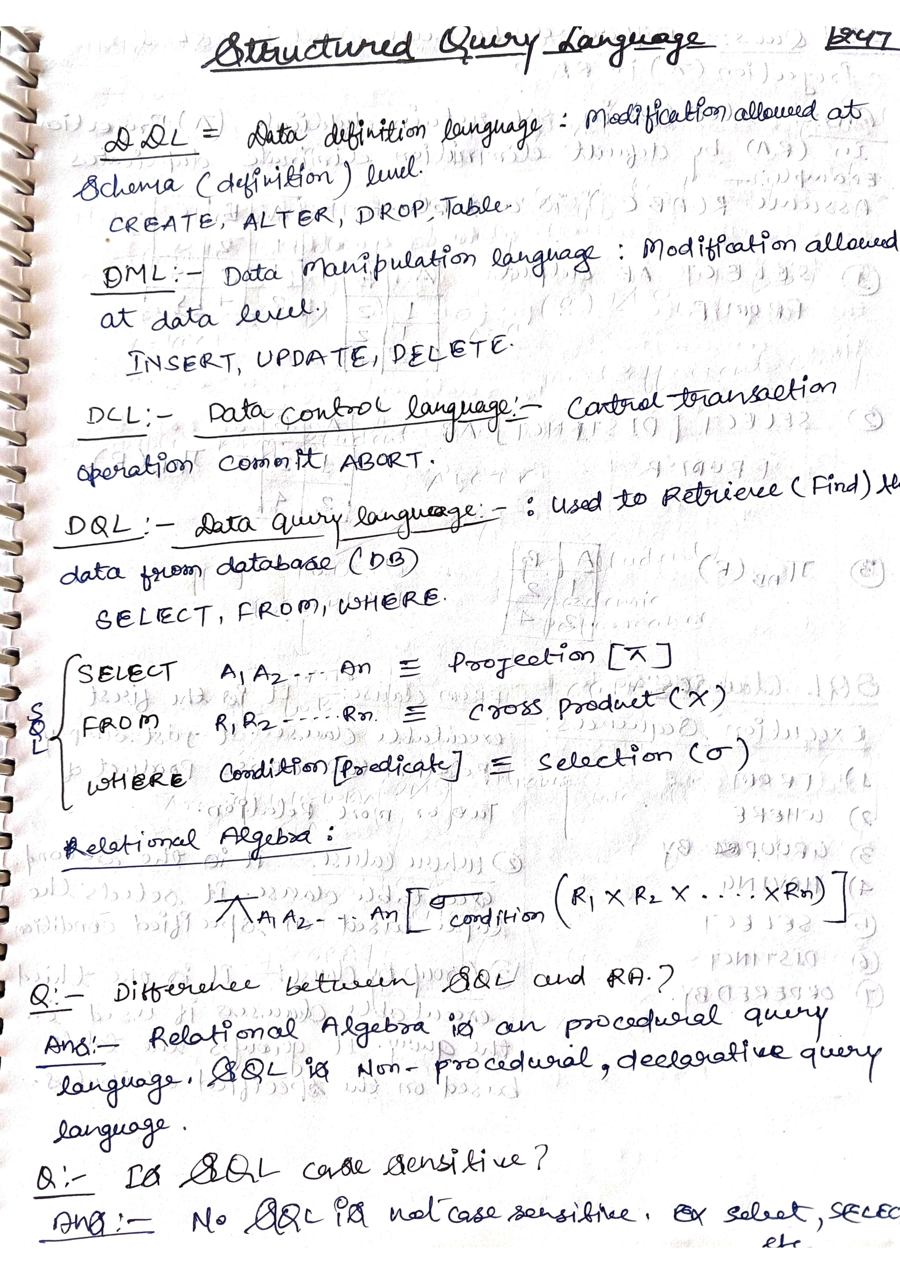 Structured Query Language 247
DDL = Data definition language : Modification allowed at
Schema (definition) level.
CREATE, ALTER, DROP, Table.
DML:- Data Manipulation language : Modification allowed
at data level.
INSERT, UPDATE, DELETE.
DCL:- Data control language:- Control transaction
operation commit, ABORT.
DQL:- Data query language:- : Used to Retrieve (Find)
data from database (DB)
SELECT, FROM, WHERE.
SELECT A1 A2 ... An ≡ Projection [π]
SQL FROM R1 R2 ...... Rn ≡ Cross Product (X)
WHERE Condition [Predicate] ≡ Selection (σ)
Relational Algebra :
π A1 A2 ... An [σ condition (R1 X R2 X ..... X Rn)]
Q:- Difference between SQL and RA.?
Ans:- Relational Algebra is an procedural query
language. SQL is Non-procedural, declarative query
language.
Q:- Is SQL case sensitive?
Ans:- No SQL is not case sensitive. Ex select, SELEC
etc